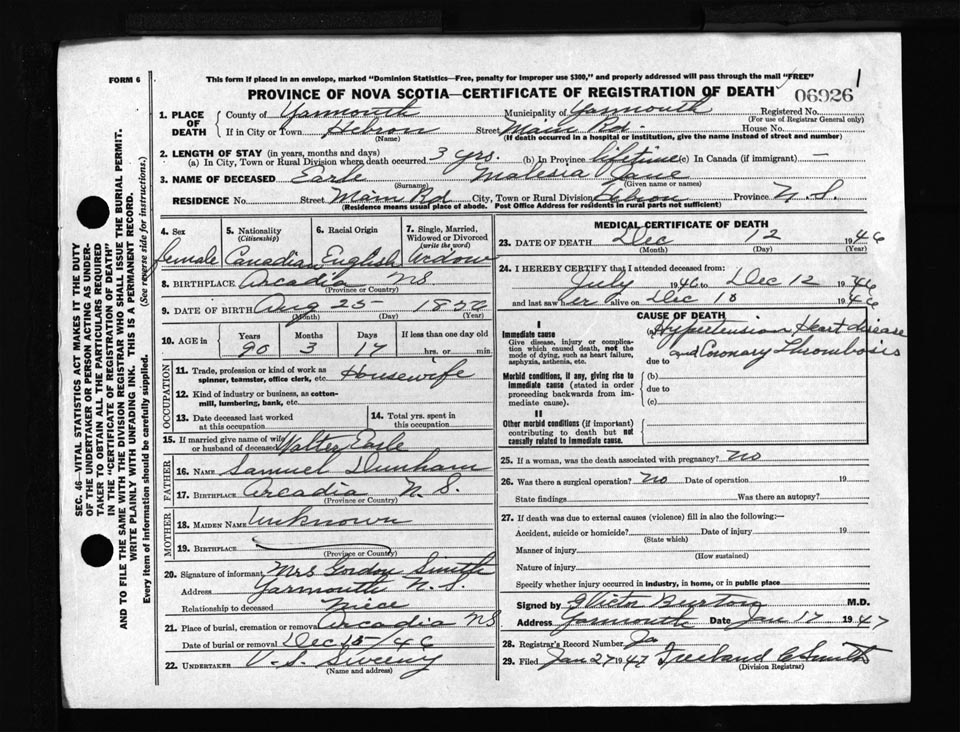 1
FORM 6
This form if placed in an envelope, marked "Dominion Statistics—Free, penalty for improper use $300," and properly addressed will pass through the mail "FREE"
PROVINCE OF NOVA SCOTIA—CERTIFICATE OF REGISTRATION OF DEATH
06926
1. PLACE OF DEATH
County of Yarmouth Municipality of Yarmouth Registered No.
(For use of Registrar General only)
If in City or Town Hebron Street Main Rd. House No.
(Name) (If death occurred in a hospital or institution, give the name instead of street and number)
2. LENGTH OF STAY (in years, months and days)
(a) In City, Town or Rural Division where death occurred 3 yrs. (b) In Province lifetime (c) In Canada (if immigrant) —
3. NAME OF DECEASED Earle Malesia Jane
(Surname) (Given name or names)
RESIDENCE No. Street Main Rd City, Town or Rural Division Hebron Province N.S.
(Residence means usual place of abode. Post Office Address for residents in rural parts not sufficient)
4. Sex
female
5. Nationality
(Citizenship)
Canadian
6. Racial Origin
English
7. Single, Married, Widowed or Divorced
(write the word)
Widow
8. BIRTHPLACE Arcadia NS
(Province or County)
9. DATE OF BIRTH Aug 25 1856
(Month) (Day) (Year)
10. AGE in
Years Months Days If less than one day old
90 3 17 hrs. or min.
OCCUPATION
11. Trade, profession or kind of work as spinner, teamster, office clerk, etc. Housewife
12. Kind of industry or business, as cotton-mill, lumbering, bank, etc.
13. Date deceased last worked at this occupation
14. Total yrs. spent in this occupation
15. If married give name of wife or husband of deceased Walter Earle
FATHER
16. NAME Samuel Dunham
17. BIRTHPLACE Arcadia N.S.
(Province or County)
MOTHER
18. MAIDEN NAME Unknown
19. BIRTHPLACE
(Province or Country)
20. Signature of informant Mrs Gordon Smith
Address Yarmouth N.S.
Relationship to deceased Niece
21. Place of burial, cremation or removal Arcadia NS
Date of burial or removal Dec 15/46
22. UNDERTAKER V.S. Sweeny
(Name and address)
MEDICAL CERTIFICATE OF DEATH
23. DATE OF DEATH Dec 12 1946
(Month) (Day) (Year)
24. I HEREBY CERTIFY that I attended deceased from:
July 1946 to Dec 12 1946
and last saw her alive on Dec 10 1946
CAUSE OF DEATH
I
Immediate cause
Give disease, injury or complication which caused death, not the mode of dying, such as heart failure, asphyxia, asthenia, etc.
(a) Hypertension Heart disease
due to and Coronary Thrombosis
Morbid conditions, if any, giving rise to immediate cause (stated in order proceeding backwards from immediate cause).
(b)
due to
(c)
II
Other morbid conditions (if important) contributing to death but not causally related to immediate cause.
25. If a woman, was the death associated with pregnancy? No
26. Was there a surgical operation? No Date of operation 19
State findings Was there an autopsy?
27. If death was due to external causes (violence) fill in also the following:—
Accident, suicide or homicide? Date of injury 19
(State which)
Manner of injury
(How sustained)
Nature of injury
Specify whether injury occurred in industry, in home, or in public place
Signed by G Victor Burton M.D.
Address Yarmouth Date Jan 17 1947
28. Registrar's Record Number
29. Filed Jan 27 1947 Freeland C Smith
(Division Registrar)
SEC. 46—VITAL STATISTICS ACT MAKES IT THE DUTY
OF THE UNDERTAKER OR PERSON ACTING AS UNDER-
TAKER TO OBTAIN ALL THE PARTICULARS REQUIRED
IN THE "CERTIFICATE OF REGISTRATION OF DEATH"
AND TO FILE THE SAME WITH THE DIVISION REGISTRAR WHO SHALL ISSUE THE BURIAL PERMIT.
WRITE PLAINLY WITH UNFADING INK. THIS IS A PERMANENT RECORD.
Every item of information should be carefully supplied. (See reverse side for instructions.)